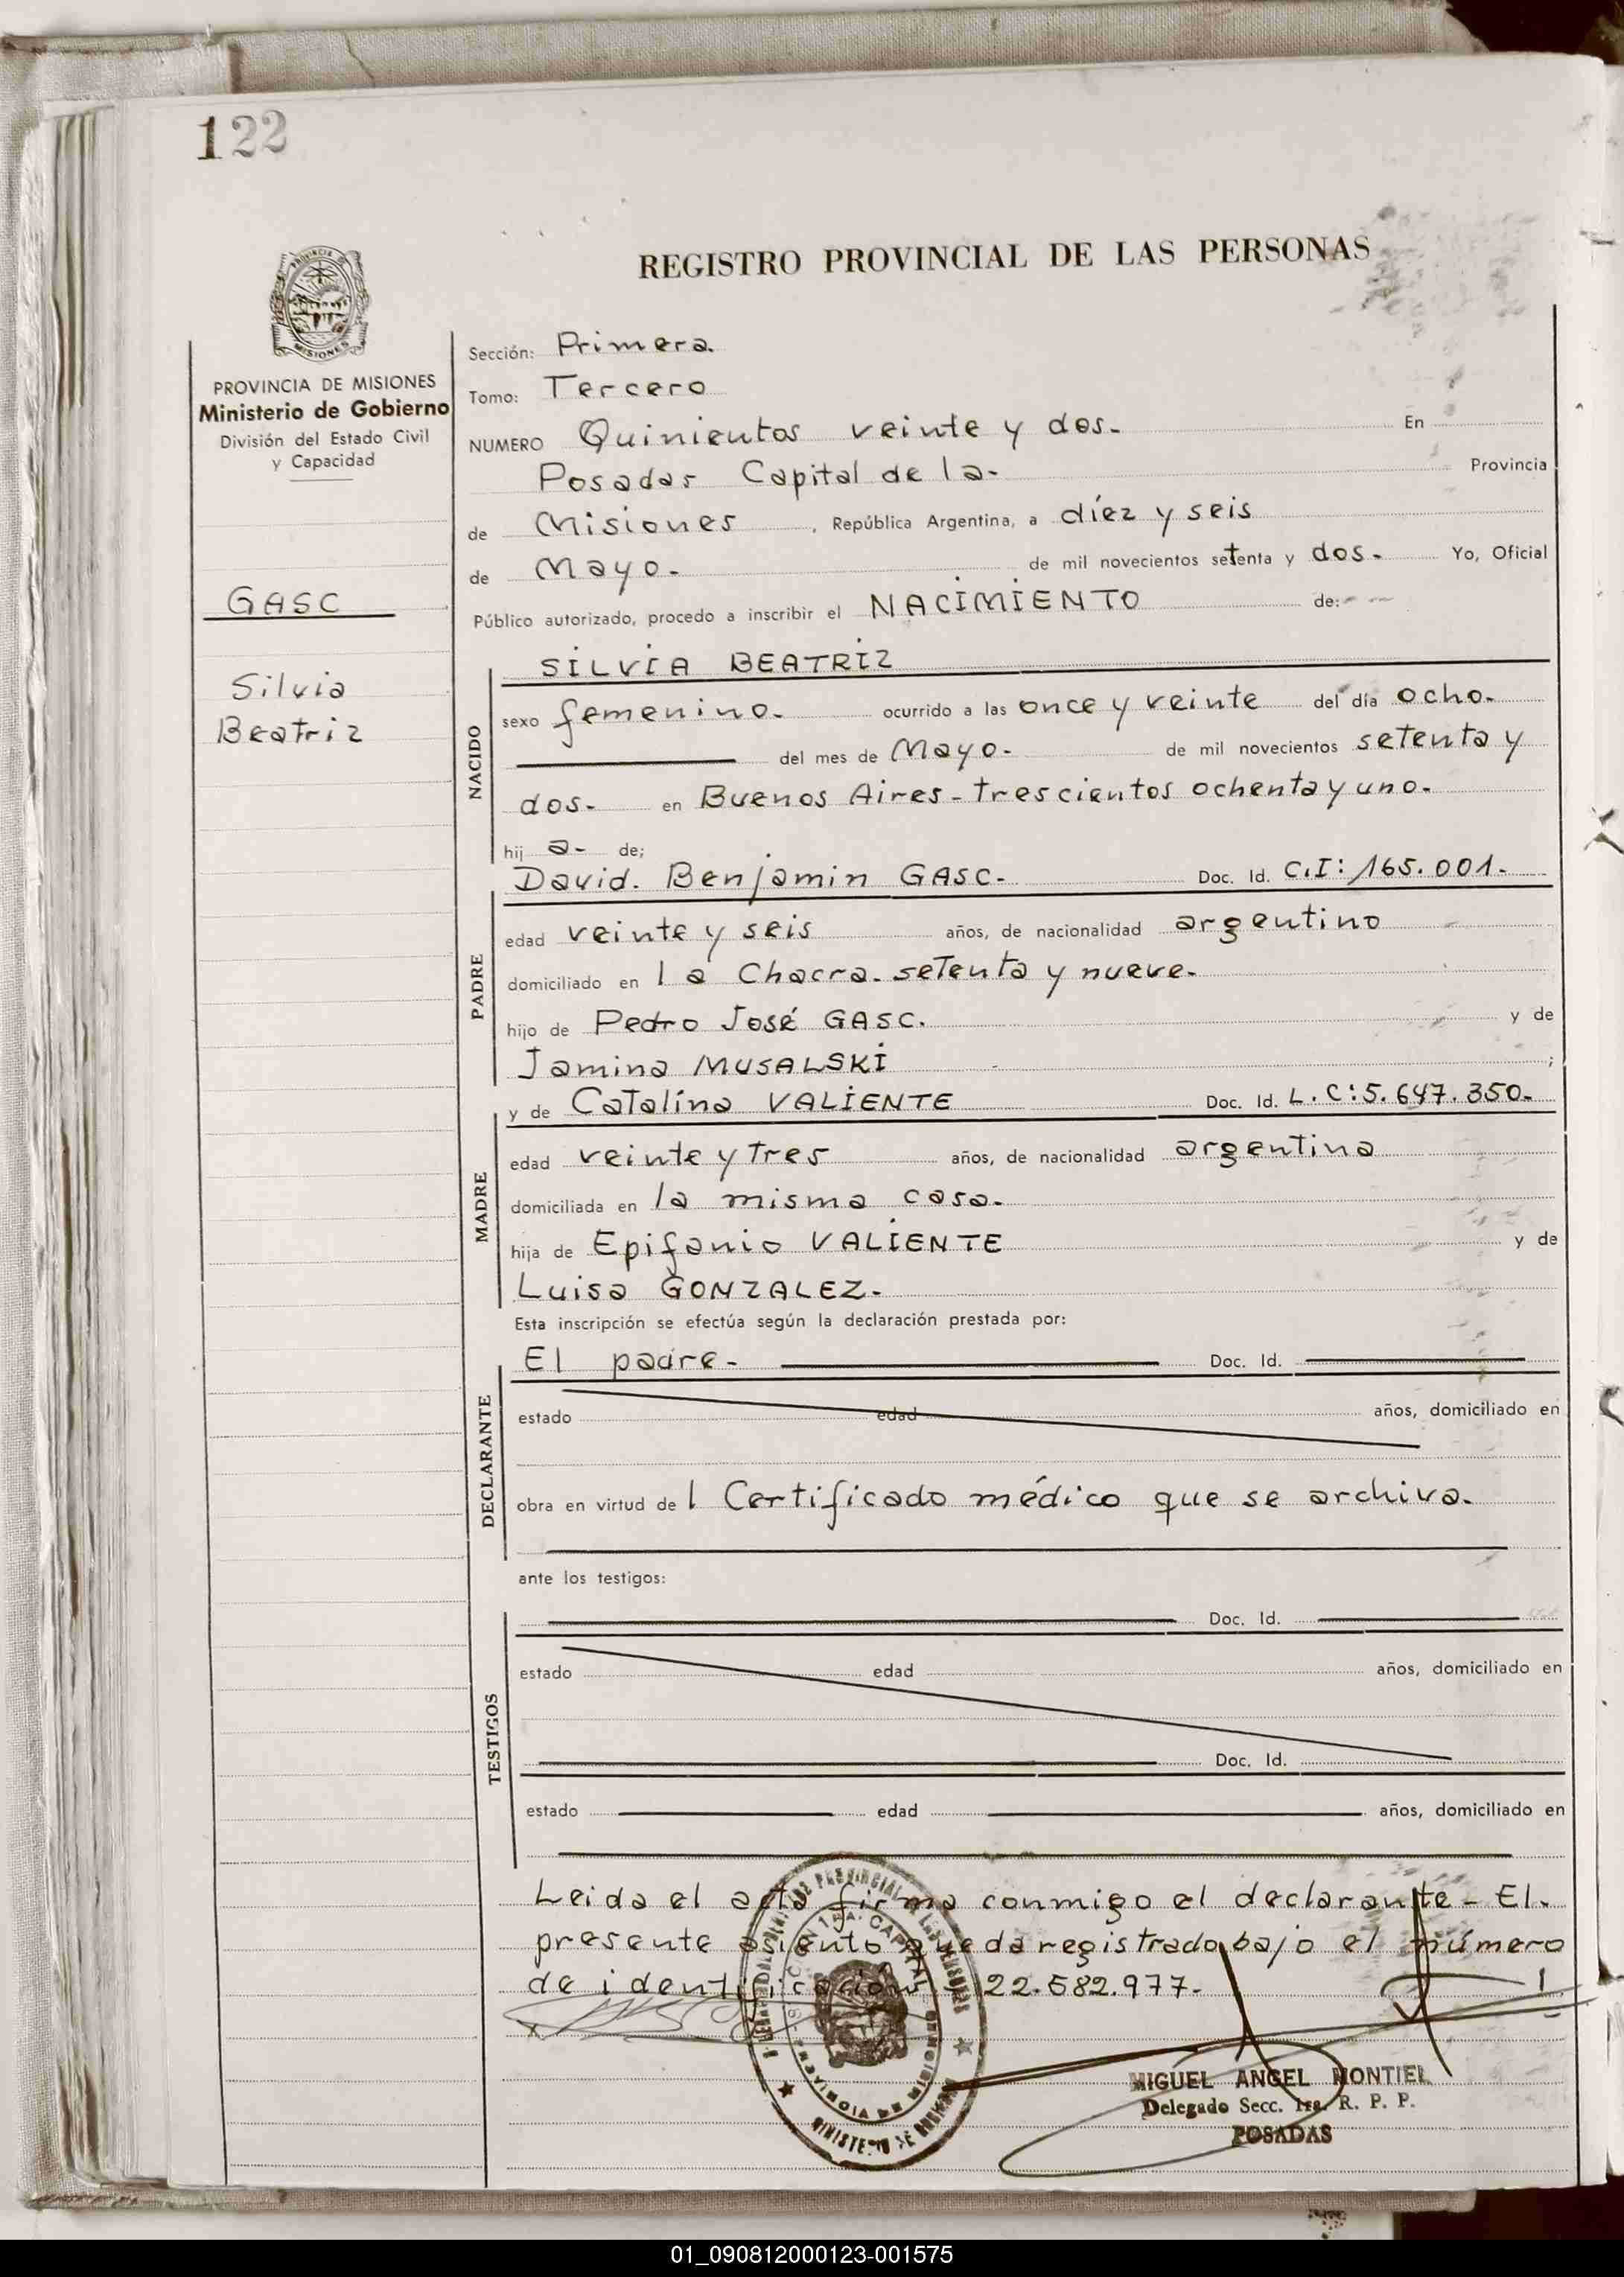 122
REGISTRO PROVINCIAL DE LAS PERSONAS
PROVINCIA DE MISIONES
Ministerio de Gobierno
División del Estado Civil
y Capacidad
GASC
Silvia
Beatriz
Sección: Primera.
Tomo: Tercero
NUMERO Quinientos veinte y dos.- En
Posadas Capital de la- Provincia
de Misiones, República Argentina, a díez y seis
de Mayo.- de mil novecientos setenta y dos.- Yo, Oficial
Público autorizado, procedo a inscribir el NACIMIENTO de:
NACIDO
SILVIA BEATRIZ
sexo femenino.- ocurrido a las once y veinte del día ocho.-
del mes de Mayo.- de mil novecientos setenta y
dos.- en Buenos Aires - trescientos ochenta y uno.-
hij a- de;
PADRE
David. Benjamin GASC.- Doc. Id. C.I: 165.001.-
edad veinte y seis años, de nacionalidad argentino
domiciliado en la Chacra. setenta y nueve.-
hijo de Pedro José GASC. y de
Jamina MUSALSKI ;
MADRE
y de Catalina VALIENTE Doc. Id. L.C:5.647.350.-
edad veinte y tres años, de nacionalidad argentina
domiciliada en la misma casa.-
hija de Epifanio VALIENTE y de
Luisa GONZALEZ.-
Esta inscripción se efectúa según la declaración prestada por:
DECLARANTE
El padre.- Doc. Id.
estado edad años, domiciliado en
obra en virtud de l Certificado médico que se archiva.
ante los testigos:
TESTIGOS
Doc. Id.
estado edad años, domiciliado en
Doc. Id.
estado edad años, domiciliado en
Leida el acta firma conmigo el declarante - El.
presente asiento queda registrado bajo el número
de identificación 22.582.977.-
MIGUEL ANGEL MONTIEL
Delegado Secc. 1ra. R. P. P.
POSADAS
01_090812000123-001575